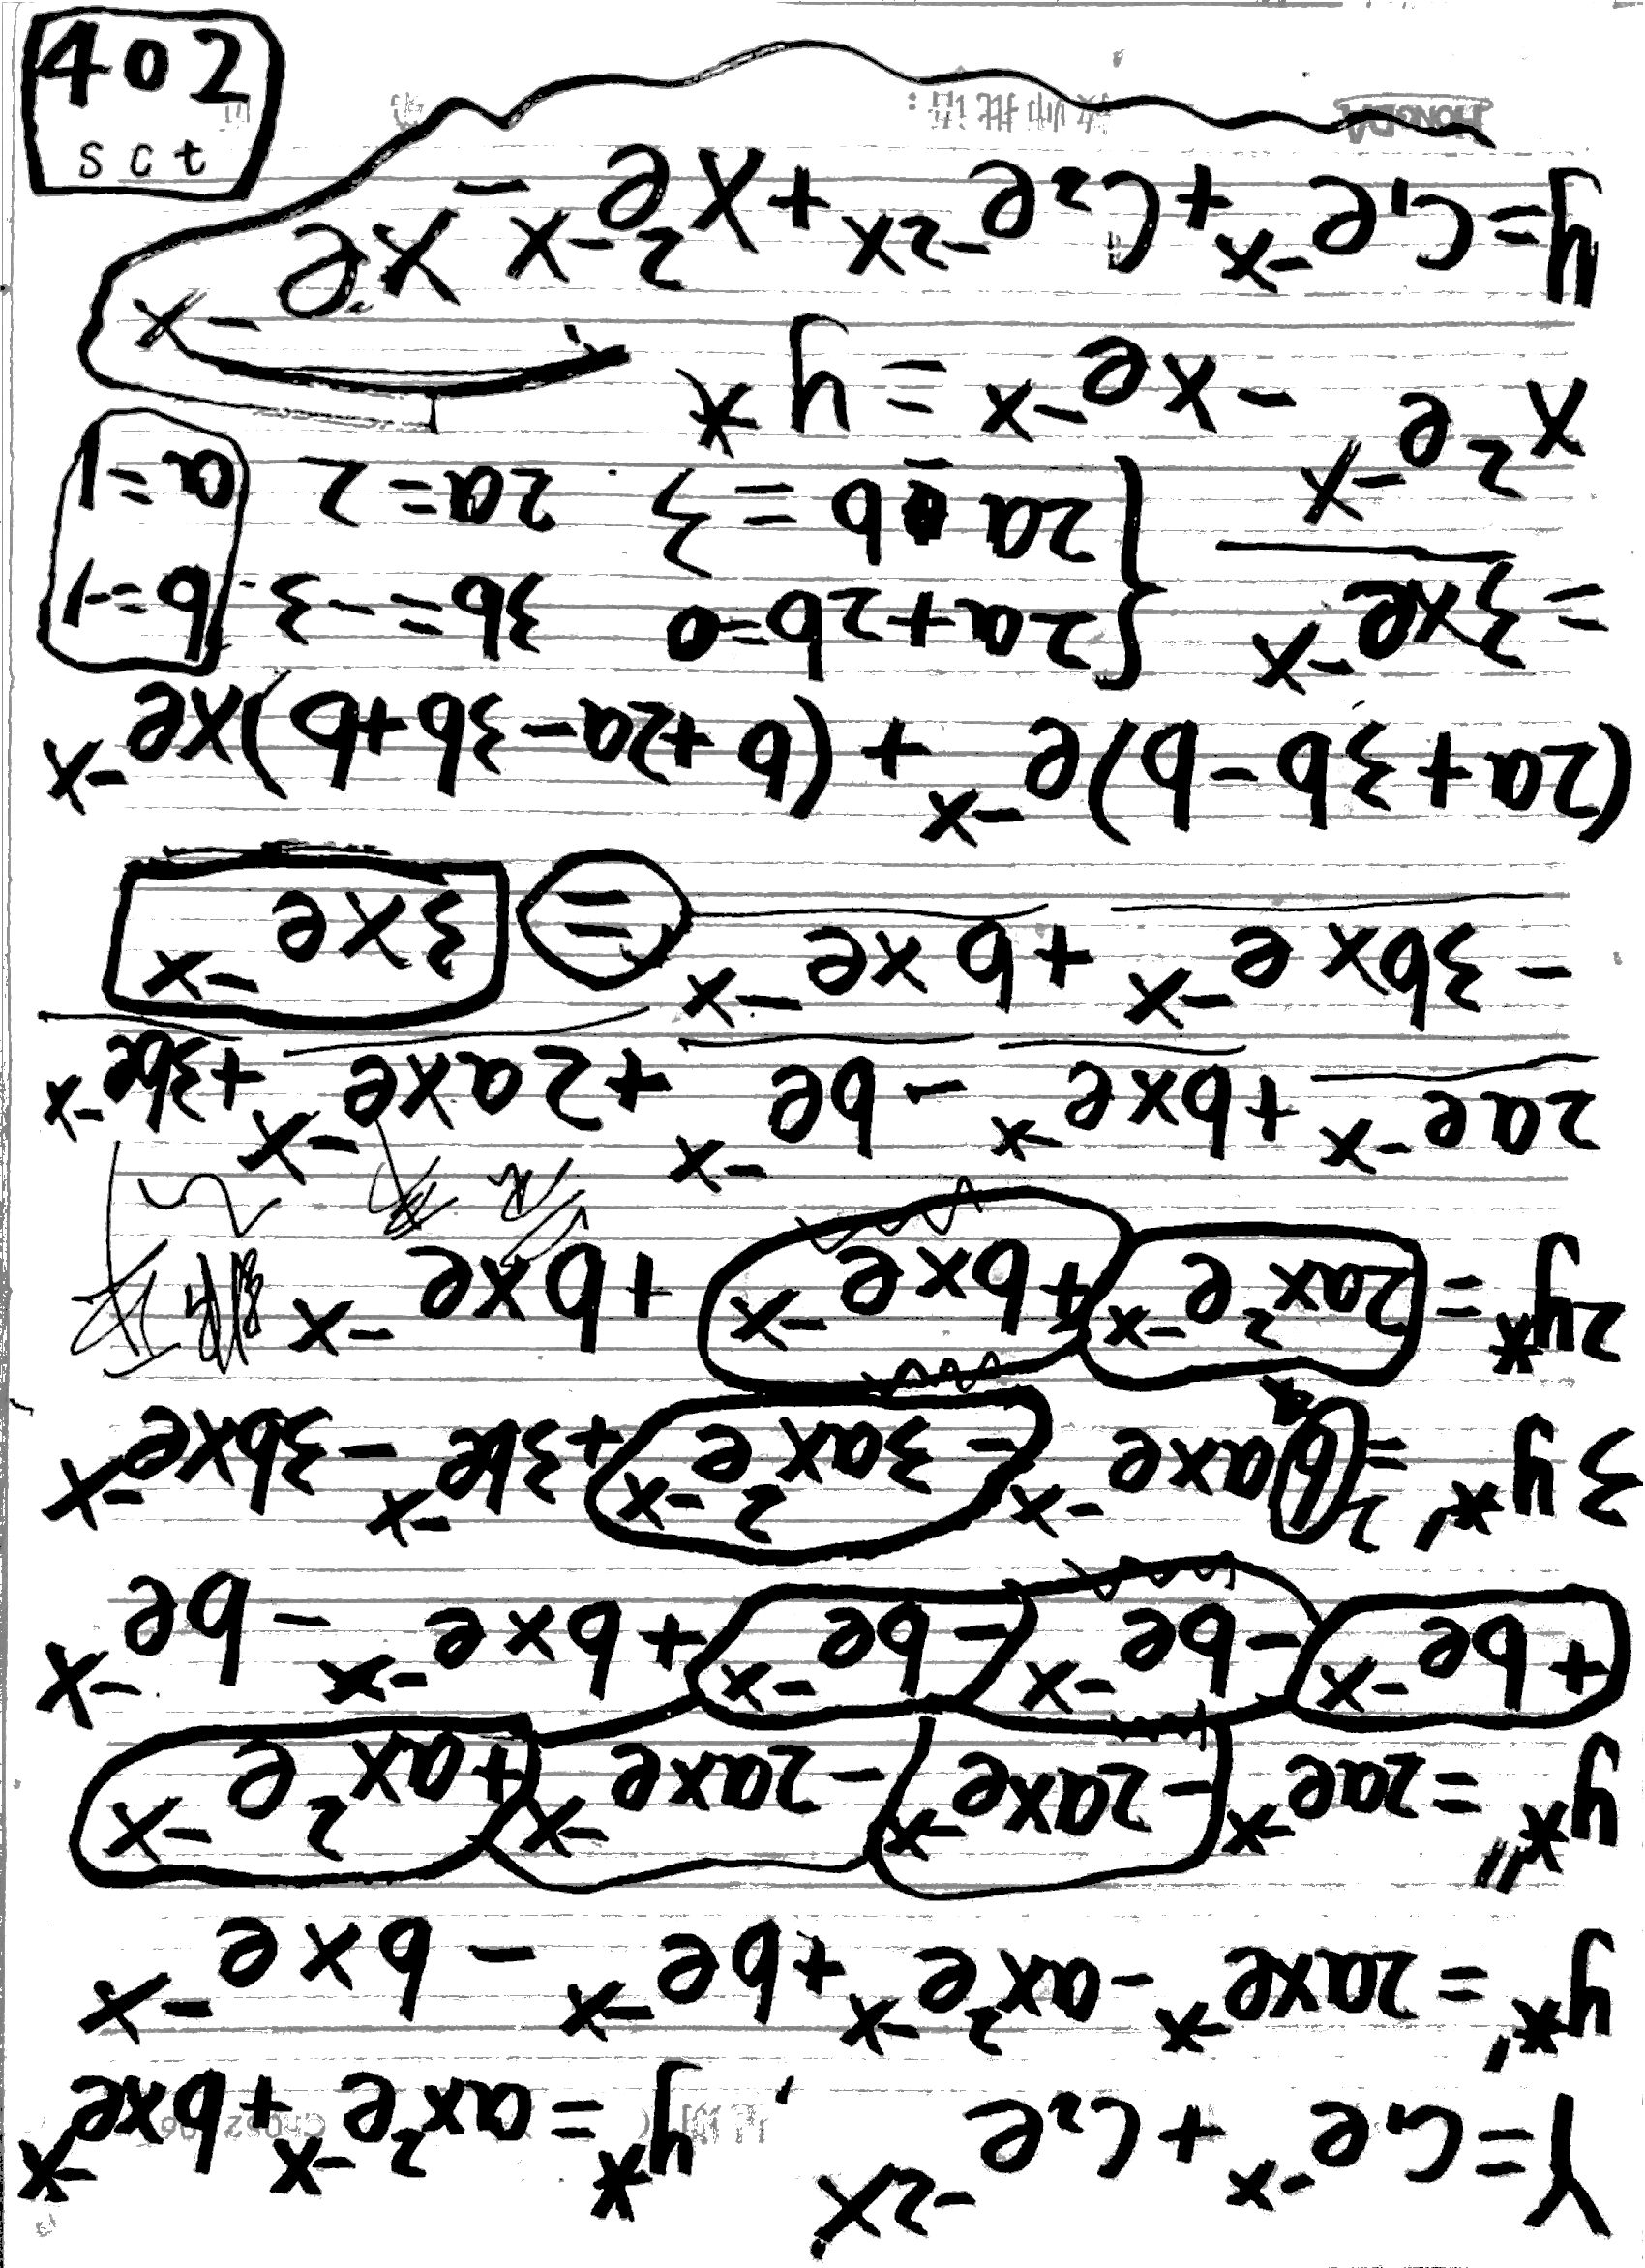 402
sct
Y=C₁e⁻ˣ+C₂e⁻²ˣ, y*=ax²e⁻ˣ+bxe⁻ˣ
y*'=2axe⁻ˣ-ax²e⁻ˣ+be⁻ˣ-bxe⁻ˣ
y*''=2ae⁻ˣ-2axe⁻ˣ-2axe⁻ˣ+ax²e⁻ˣ
+be⁻ˣ-be⁻ˣ-be⁻ˣ+bxe⁻ˣ-be⁻ˣ
3y*'=axe⁻ˣ-3ax²e⁻ˣ+3be⁻ˣ-3bxe⁻ˣ
2y*=2ax²e⁻ˣ+bxe⁻ˣ+bxe⁻ˣ
2ae⁻ˣ+bxe⁻ˣ-be⁻ˣ+2axe⁻ˣ+3be⁻ˣ
-3bxe⁻ˣ+bxe⁻ˣ=3xe⁻ˣ
(2a+3b-b)e⁻ˣ+(b+2a-3b+b)xe⁻ˣ
=3xe⁻ˣ {2a+2b=0 3b=-3. b=-1
x²e⁻ˣ 2a-b=3. 2a=2 a=1
-xe⁻ˣ=y*
y=C₁e⁻ˣ+C₂e⁻²ˣ+x²e⁻ˣ-xe⁻ˣ
HONGDA